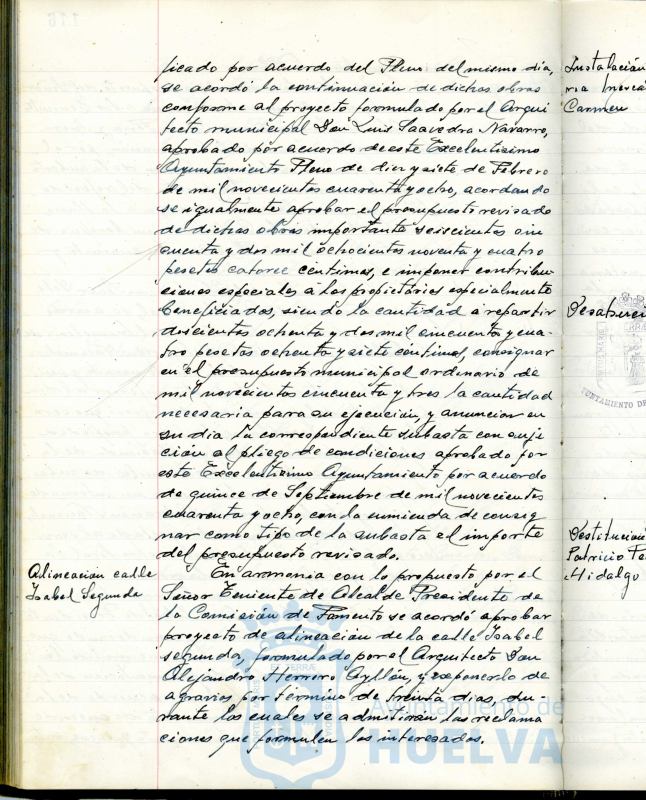 ficado por acuerdo del Pleno del mismo dia,
se acordó la continuación de dichas obras
conforme al proyecto formulado por el Arqui
tecto municipal Don Luis Saavedra Navarro,
aprobado por acuerdo de este Excelentisimo
Ayuntamiento Pleno de diez y siete de Febrero
de mil novecientos cuarenta y ocho, acordando
se igualmente aprobar el presupuesto revisado
de dichas obras importante seiscientos cin
cuenta y dos mil ochocientos noventa y cuatro
pesetas catorce céntimos, e imponer contribu
ciones especiales á los propietarios especialmente
beneficiados, siendo la cantidad a repartir
doscientos ochenta y dos mil cincuenta y cua-
tro pesetas ochenta y siete céntimos, consignar
en el presupuesto municipal ordinario de
mil novecientos cincuenta y tres la cantidad
necesaria para su ejecución, y anunciar en
su dia la correspondiente subasta con suje
ción al pliego de condiciones aprobado por
este Excelentisimo Ayuntamiento por acuerdo
de quince de Septiembre de mil novecientos
cuarenta y ocho, con la enmienda de consig
nar como tipo de la subasta el importe
del presupuesto revisado.
Alineacion calle
Isabel Segunda
En armonia con lo propuesto por el
Señor Teniente de Alcalde Presidente de
la Comisión de Fomento se acordó aprobar
proyecto de alineación de la calle Isabel
segunda, formulado por el Arquitecto Don
Alejandro Herrero Ayllón, y exponerlo de
agravios por término de treinta dias, du-
rante los cuales se admitirán las reclama
ciones que formulen los interesados.
Instalación
ria
Carmen
Destitución
Patricio Fe
Hidalgo
Ayuntamiento de
HUELVA